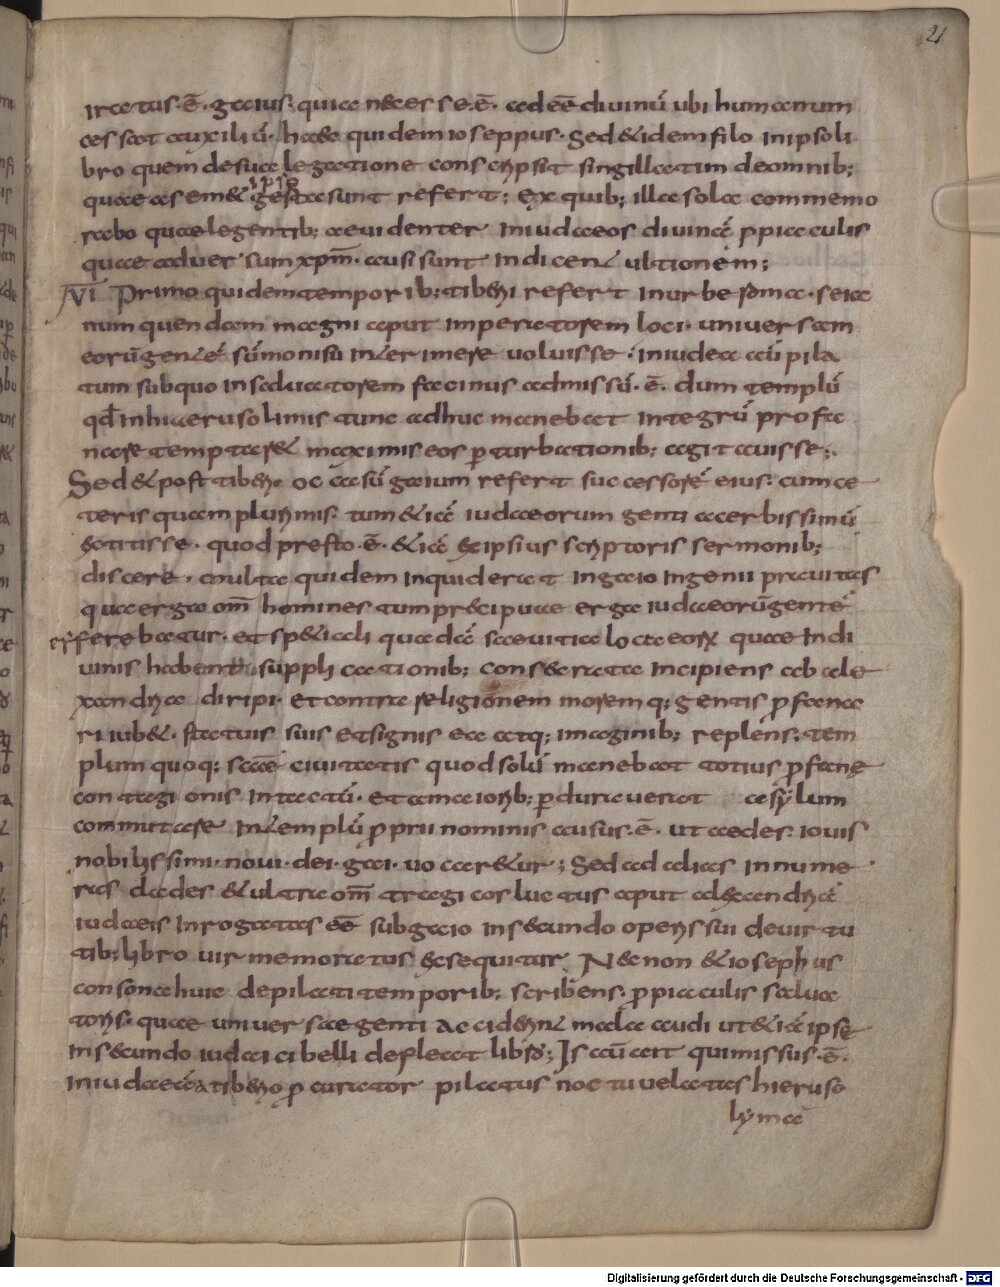 21
iratus·ē· gaius· quia necesse·ē· adeē diuinū ubi humanum
cessat auxiliū· haec quidem ioseppus· Sed & idem filo in ipso li
bro quem de sua legatione conscripsit singillatim de omnib;
quae a se m& ipso gesta sunt refert; Ex quib; illa sola commemo
rabo quae legentib; aeuidenter in iudaeos diuinę ppiaculis
quae aduersum xpm̄ ausi sunt indicent ultionem;
VI Primo quidem temporib; tiberii refert in urbe roma· seia
num quendam magni aput imperatorem loci· uniuersam
eorū gentē sūmonisū interimere uoluisse· in iudea aū pila
tum sub quo in saluatorem facinus admissū·ē· dum templū
qd̄ in hiaerusolimis tunc adhuc manebat integrū profa
nare temptar& maximis eos pturbationib; agitauisse;
Sed & post tiberi ocasū gaium refert successorē eius· cum ce
teris quam plurimis· tum & iā iudaeorum genti acerbissimū
extitisse· quod presto·ē· & iā ex ipsius scriptoris sermonib;
discere· multa quidem inquid erat in gaio ingenii prauitas
quae erga om̄ homines tum praecipuae erga iudaeorū gentē
efferebatur· et speciali quadā saeuitia loca eorꝝ quae in di
uinis habent supplicationib; consecrata incipiens ab ale
xandria diripi· et contra religionem morem q; gentis pfana
ri iub&· statuis suis et signis ac atq; imaginib; replens· tem
plum quoq; scāe ciuitatis quod solū manebat totius pfane
contagionis intactū· et a maiorib; pdurauerat asylum
commutare in templū pprii nominis ausus·ē· ut aedes· iouis
nobilissimi· noui· dei· gai· uocar&ur; Sed ad alias innume
ras clades & ultra om̄ tragicos luctus aput alexandriā
iudaeis inrogatas eē sub gaio in secundo operis sui de uirtu
tib; libro uir memoratus exsequitur. Nec non & iosephus
consona huic de pilati temporib; scribens· ppiaculis salua
toris· quae uniuersae genti acciderint mala audi ut & iā ipse
in secundo iudaici belli defleat libro; Is aū ait qui missus·ē·
in iudaeā a tiberio pcurator pilatus noctu uelatas hieruso
lymae
Digitalisierung gefördert durch die Deutsche Forschungsgemeinschaft - DFG